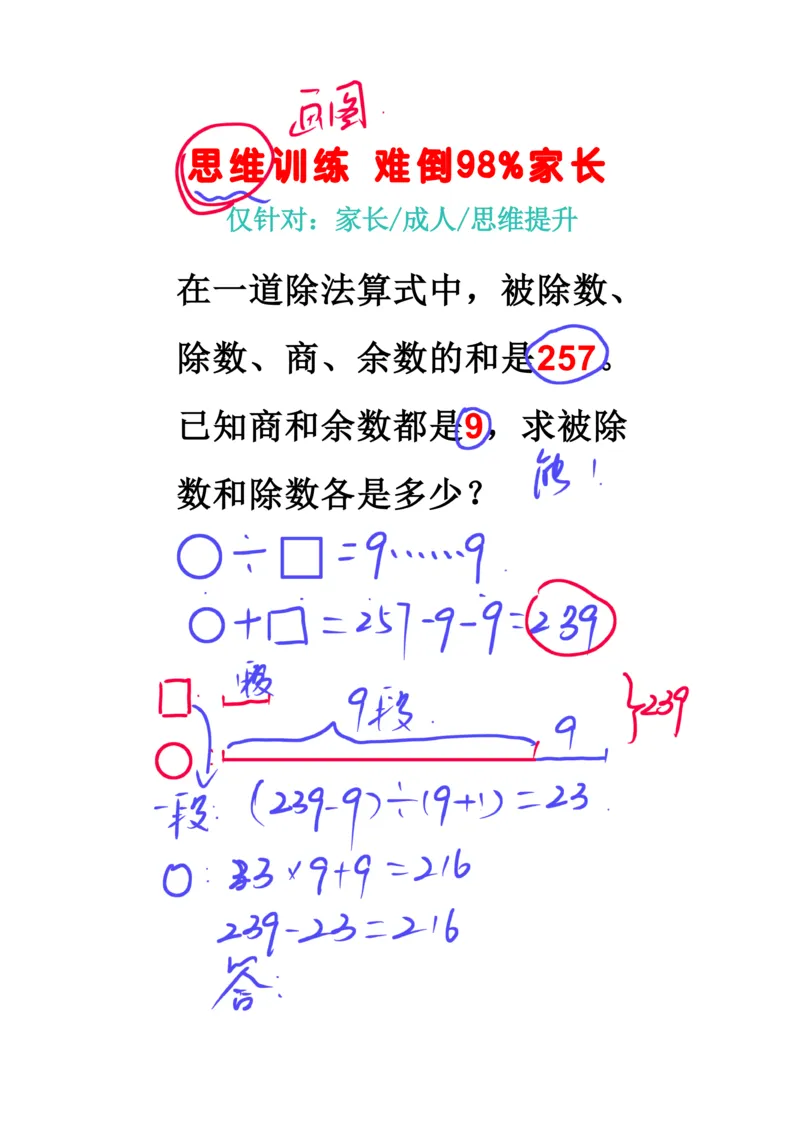 画图
思维训练 难倒98%家长
仅针对：家长/成人/思维提升
在一道除法算式中，被除数、
除数、商、余数的和是257。
已知商和余数都是9，求被除
数和除数各是多少？
○÷□=9……9
○+□=257-9-9=239
□
9段
9
}239
○
一段: (239-9)÷(9+1)=23
○: 23×9+9=216
239-23=216
答: